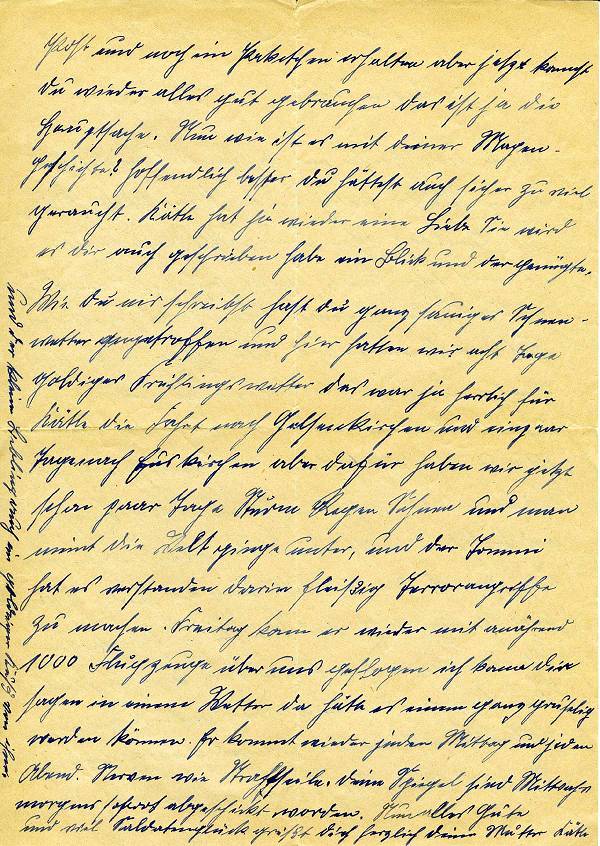 Post und noch ein Paketchen erhalten aber jetzt kannst
Du wieder alles gut gebrauchen das ist ja die
Hauptsache. Nun wie ist es mit deiner Magen-
geschichte? hoffendlich besser du hattest auch sicher zu viel
geraucht. Käthe hat ja wieder eine Liebe Sie wird
es dir auch geschrieben habe ein Blick und der genügte.
Wie Du mir schreibst hast du ganz sauiges Schnee-
wetter angetroffen und hier hatten wir acht Tage
goldiges Frühlingswetter das war ja herlich für
Käthe die Fahrt nach Gelsenkirchen und ein paar
Tage nach Euskirchen aber dafür haben wir jetzt
schon paar Tage Sturm Regen Schnee und man
meint die Welt ginge unter, und der Tommi
hat es verstanden darin fleißig Terrorangriffe
zu machen. Freitag kam er wieder mit anährend
1000 Flugzeuge über uns geflogen ich kann dir
sagen in einem Wetter da häte es einem ganz gruselig
werden können. Er kommt wieder jeden Mittag und jeden
Abend. Nerven wie Drahtseile. Deine Spiegel sind Mittwochs
morgens sofort abgeschickt worden. Nun alles Gute
und viel Soldatenglück grüßt dich herzlich deine Mutter Käthe
und der kleine Liebling und ein Kuß von ihm